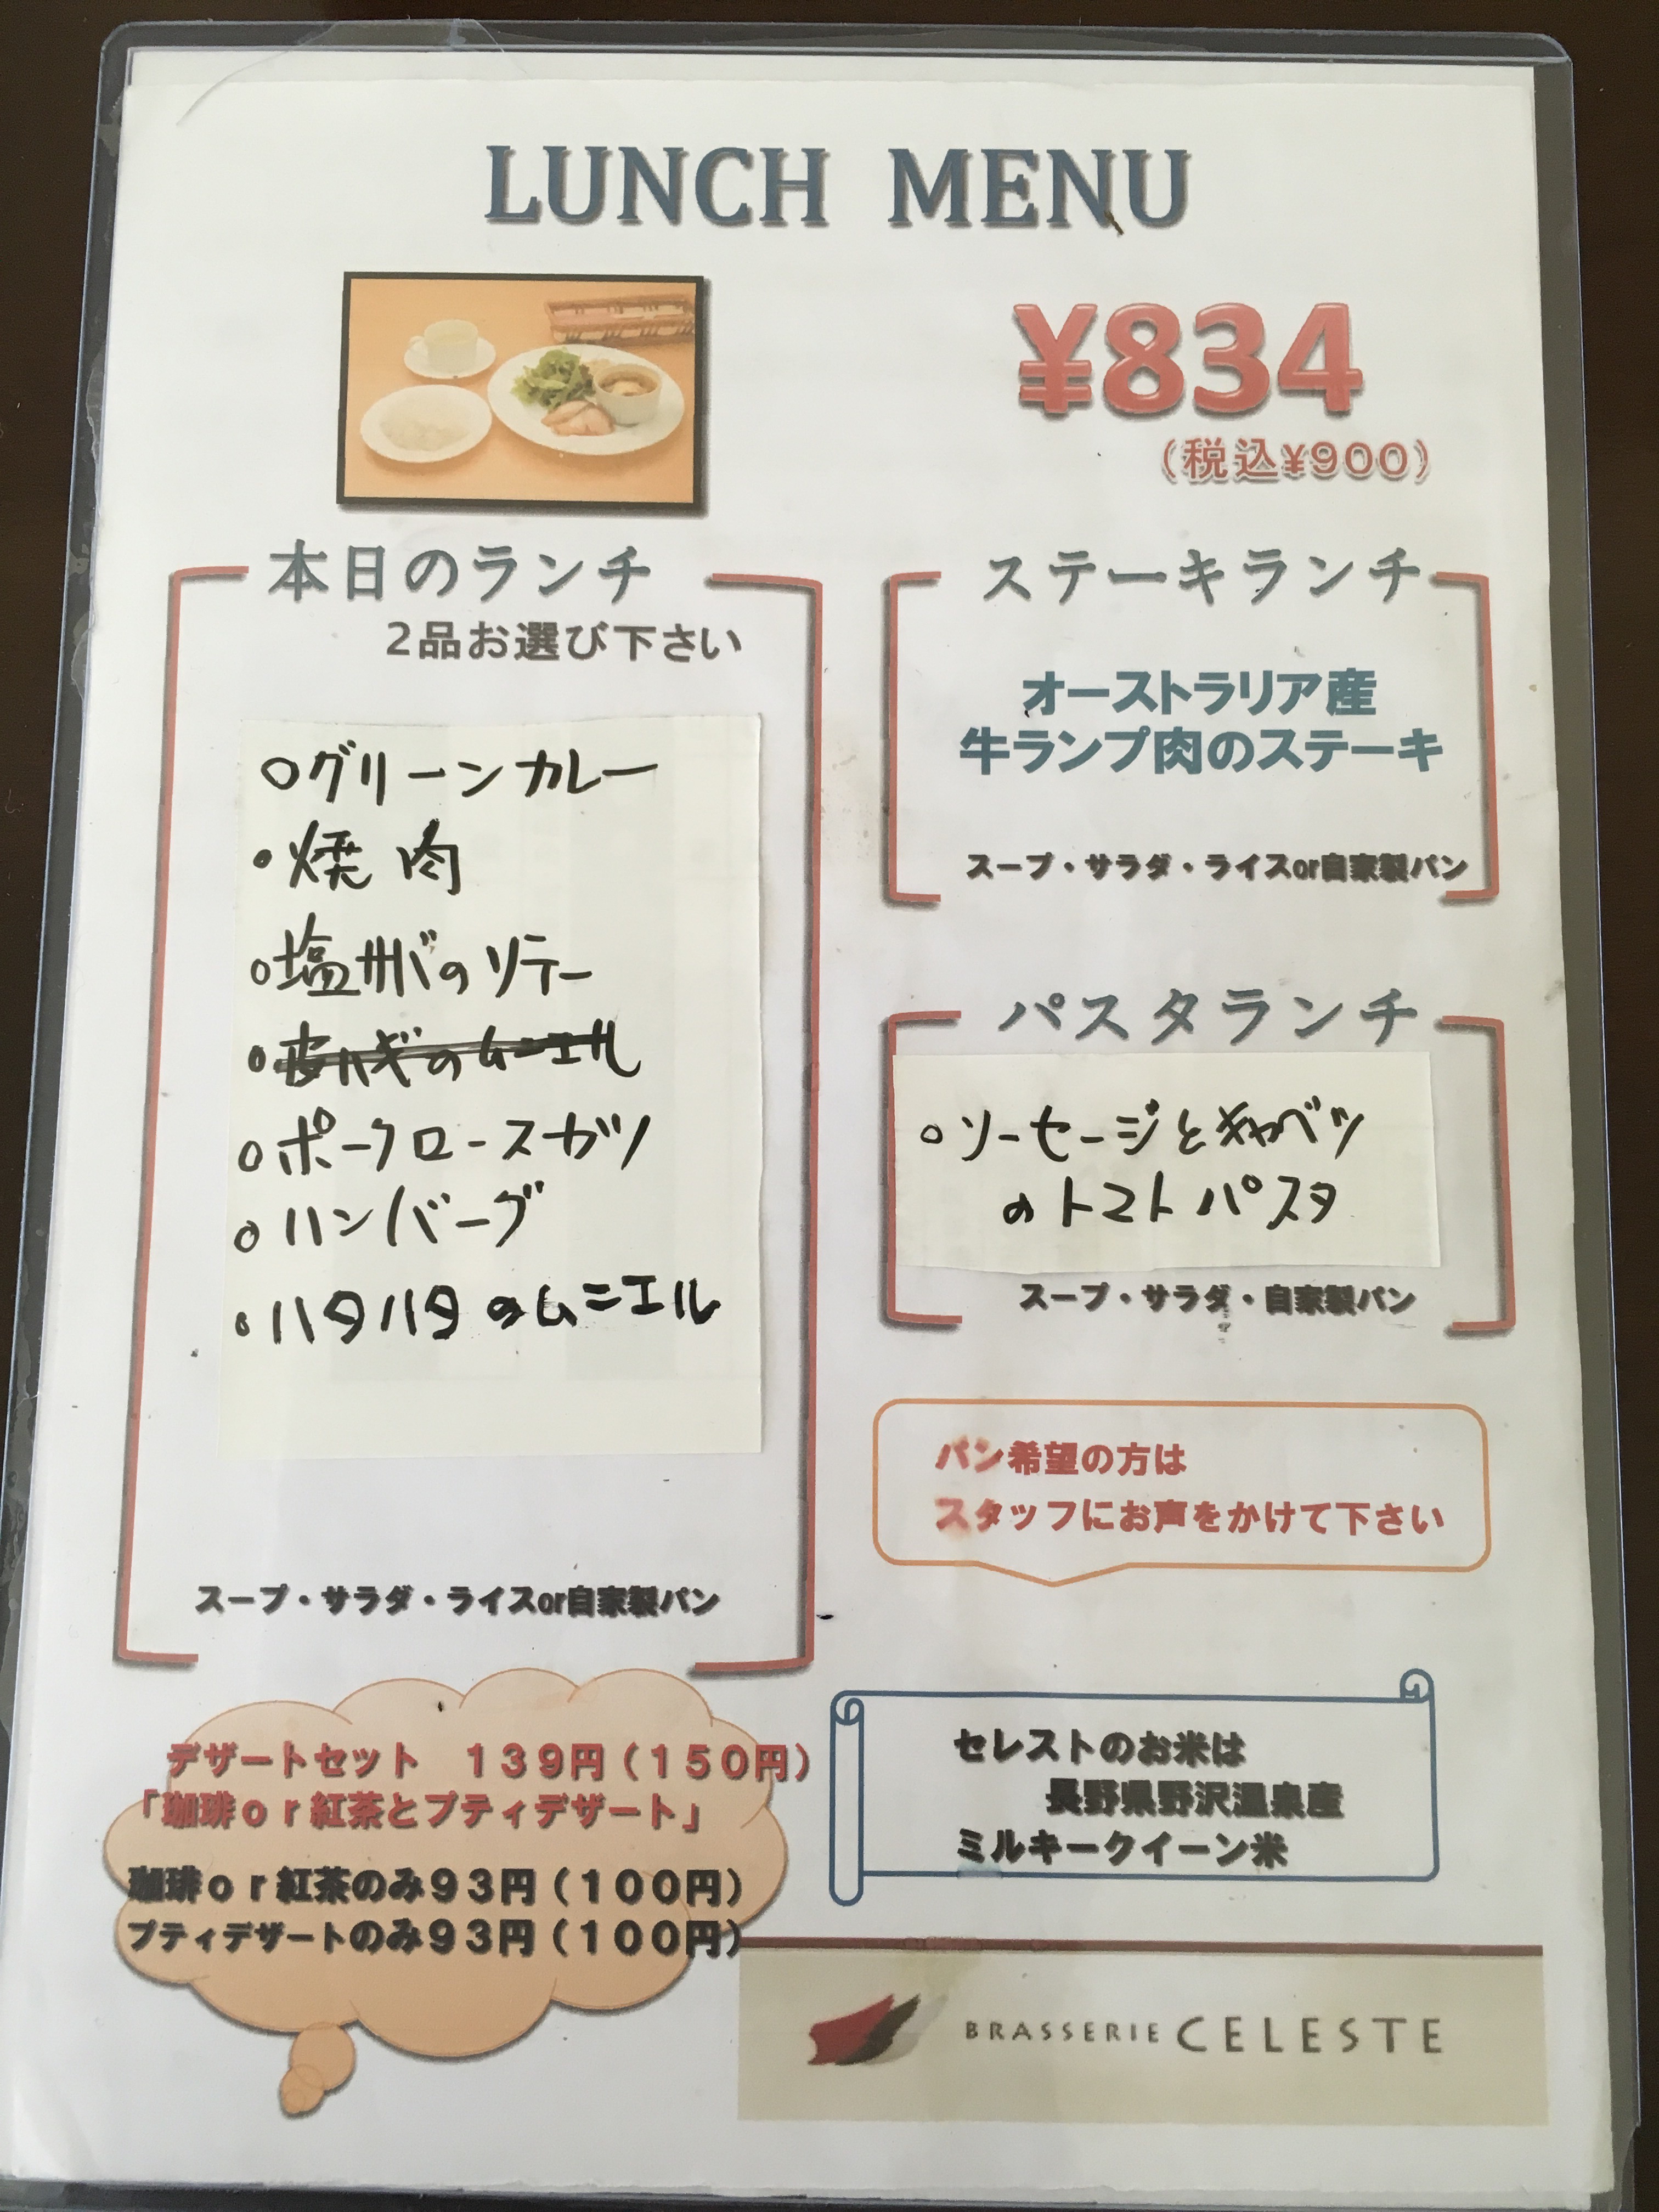 LUNCH MENU
¥834
(税込¥900)
本日のランチ
2品お選び下さい
○グリーンカレー
○焼肉
○塩サバのソテー
○皮ハギのムニエル
○ポークロースカツ
○ハンバーグ
○ハタハタのムニエル
スープ・サラダ・ライスor自家製パン
ステーキランチ
オーストラリア産
牛ランプ肉のステーキ
スープ・サラダ・ライスor自家製パン
パスタランチ
○ソーセージとキャベツ
のトマトパスタ
スープ・サラダ・自家製パン
パン希望の方は
スタッフにお声をかけて下さい
デザートセット 139円(150円)
「珈琲or紅茶とプティデザート」
珈琲or紅茶のみ93円(100円)
プティデザートのみ93円(100円)
セレストのお米は
長野県野沢温泉産
ミルキークイーン米
BRASSERIE CELESTE